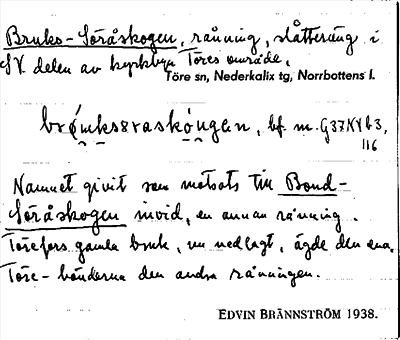 Bruks-Söråskogen, rånning, slåtteräng i
SV delen av kyrkbyn Töres område.
Töre sn, Nederkalix tg, Norrbottens l.
bf. m. G37KYb3,
116
Namnet givit som motsats till Bond-
Söråskogen invid, en annan rånning.
Törefors gamla bruk, nu nedlagt, ägde den ena,
Töre-bönderna den andra rånningen.
EDVIN BRÄNNSTRÖM 1938.